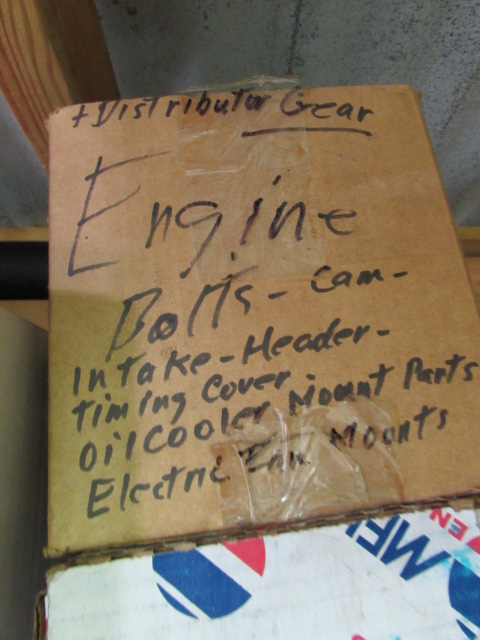 + Distributor Gear
Engine
Bolts - Cam -
Intake - Header -
timing Cover -
Oil Cooler Mount Parts
Electric Fan Mounts